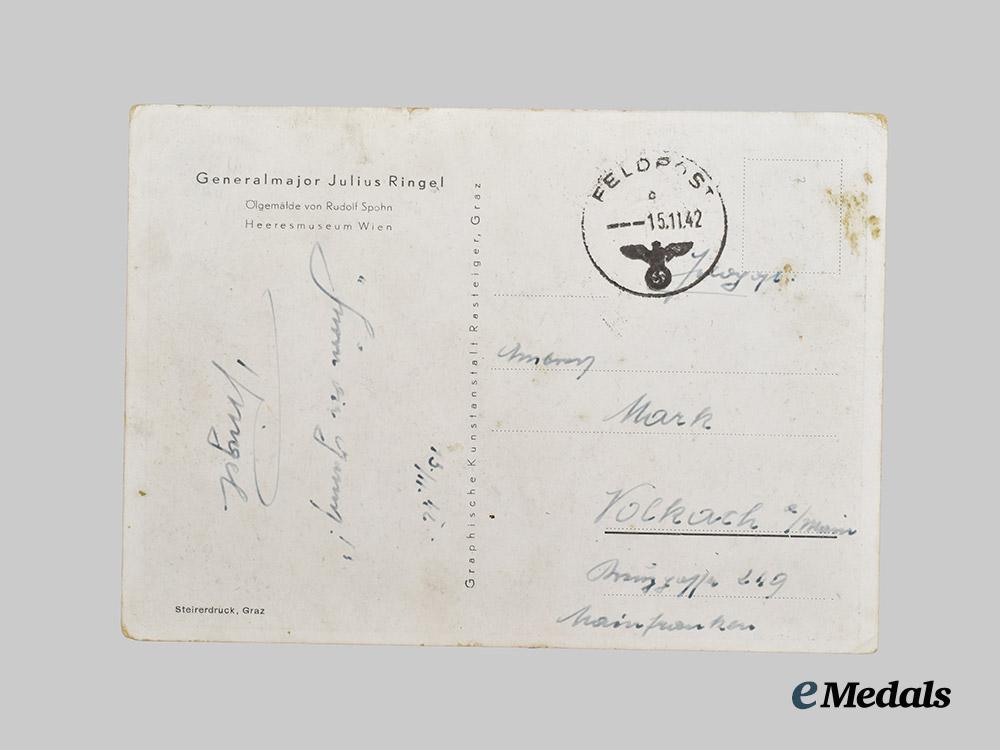 Generalmajor Julius Ringel
Ölgemälde von Rudolf Spohn
Heeresmuseum Wien
13/11.42.
"
Ringel
Steirerdruck, Graz
Graphische Kunstanstalt Rasteiger, Graz
FELDPOST
c
---15.11.42
Mark
Volkach a/Main
249
Mainfranken
eMedals